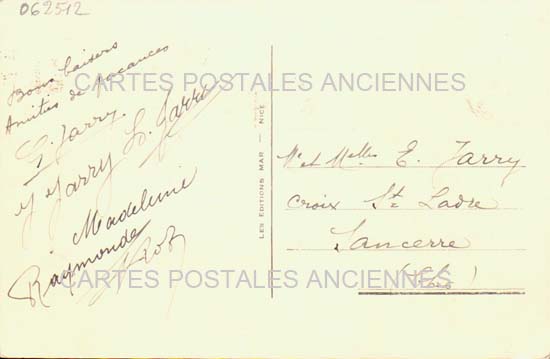 062512
Bons baisers
Amitiés de vacances
CARTES POSTALES ANCIENNES
E. Jarry
Y Jarry L. Jarry
Madeleine
Raymonde
LES EDITIONS MAR — NICE
Mr et Melles E. Jarry
Croix St Ladre
Sancerre
CARTES POSTALES ANCIENNES